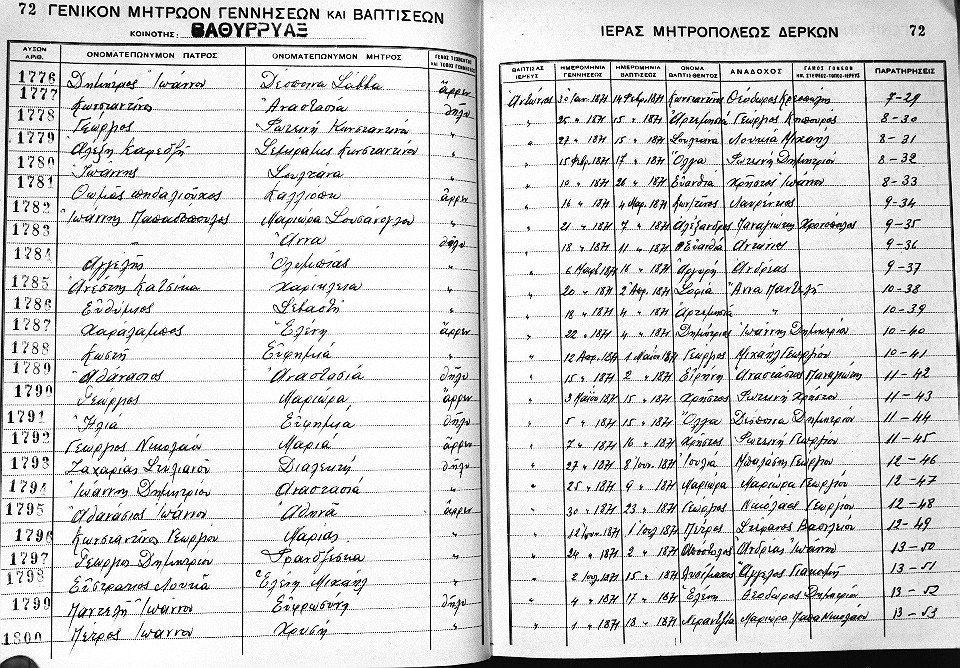 72 ΓΕΝΙΚΟΝ ΜΗΤΡΩΟΝ ΓΕΝΝΗΣΕΩΝ ΚΑΙ ΒΑΠΤΙΣΕΩΝ
ΚΟΙΝΟΤΗΣ: ΒΑΘΥΡΡΥΑΞ
ΑΥΞΩΝ ΑΡΙΘ. ΟΝΟΜΑΤΕΠΩΝΥΜΟΝ ΠΑΤΡΟΣ ΟΝΟΜΑΤΕΠΩΝΥΜΟΝ ΜΗΤΡΟΣ
1776 Δημήτριος Ἰωάννου Δέσποινα Σάββα ἄρρεν
1777 Κωνσταντῖνος Ἀναστασία θῆλυ
1778 Γεώργιος Φωτεινή Κωνσταντίνου "
1779 Ἀλέξη Καφεδζῆ Σεμίραμις Κωνσταντίνου "
1780 Ἰωάννης Σουλτάνα "
1781 Θωμᾶς πηδαλιοῦχος Καλλιόπη ἄρρεν
1782 Ἰωάννης Παπαδόπουλος Μαριώρα "
1783 Ἄννα θῆλυ
1784 Ἀγγελῆς "
1785 Ἀνέστη Κατσίκα Χαρίκλεια "
1786 Εὐθύμιος Σεβαστή "
1787 Χαράλαμπος Ἑλένη ἄρρεν
1788 Κωστῆ Εὐφημιά "
1789 Ἀθανάσιος Ἀναστασιά θῆλυ
1790 Γεώργιος Μαριώρα ἄρρεν
1791 Ἠλία Εὐφημιά θῆλυ
1792 Γεώργιος Νικολάου Μαριά ἄρρεν
1793 Ζαχαρίας Στυλιανοῦ Διαλεκτή θῆλυ
1794 Ἰωάννη Δημητρίου Ἀναστασιά "
1795 Ἀθανάσιος Ἰωάννου Ἀθηνᾶ ἄρρεν
1796 Κωνσταντῖνος Γεωργίου Μαριάς "
1797 Γεώργιος Δημητρίου "
1798 Εὐστράτιος Ἑλένη Μιχαήλ "
1799 Παντελῆ Ἰωάννου Εὐφρωσύνη θῆλυ
1800 Πέτρος Ἰωάννου Χρυσῆ "
ΙΕΡΑΣ ΜΗΤΡΟΠΟΛΕΩΣ ΔΕΡΚΩΝ 72
ΒΑΠΤΙΣΑΣ ΙΕΡΕΥΣ ΗΜΕΡΟΜΗΝΙΑ ΓΕΝΝΗΣΕΩΣ ΗΜΕΡΟΜΗΝΙΑ ΒΑΠΤΙΣΕΩΣ ΟΝΟΜΑ ΒΑΠΤΙΣΘΕΝΤΟΣ ΑΝΑΔΟΧΟΣ ΓΑΜΟΣ ΓΟΝΕΩΝ ΠΑΡΑΤΗΡΗΣΕΙΣ
Ἀντώνιος 30 Ἰαν. 1871 14 Φεβρ. 1871 Κωνσταντῖνος Θεόδωρος 7-29
" 25 " 1871 15 " 1871 Ἀρτεμησία Γεώργιος Κηπουρός 8-30
" 27 " 1871 15 " 1871 Σουλτάνα Λουκιά Μιχαήλ 8-31
" 15 Φεβρ. 1871 17 " 1871 Ὄλγα Φωτεινή Δημητρίου 8-32
" 10 " 1871 26 " 1871 Εὐανθία Χρῆστος Ἰωάννου 8-33
" 16 " 1871 4 Μαρ. 1871 Κων/τῖνος Λαυρέντιος 9-34
" 21 " 1871 7 " 1871 Ἀλέξανδρος Παναγιώτης 9-35
" 18 " 1871 11 " 1871 Εὐανθία Ἀντώνιος 9-36
" 6 Μαρτ. 1871 16 " 1871 Ἀργυρή Ἀνδρέας 9-37
" 20 " 1871 2 Ἀπρ. 1871 Σοφία Ἄννα Παντελῆ 10-38
" 18 " 1871 4 " 1871 Ἀρτεμησία " 10-39
" 22 " 1871 4 " 1871 Δημήτριος Ἰωάννης Δημητρίου 10-40
" 12 Ἀπρ. 1871 1 Μαΐου 1871 Γεώργιος Μιχαήλ Γεωργίου 10-41
" 15 " 1871 2 " 1871 Εἰρήνη Ἀναστάσιος Παναγιώτη 11-42
" 3 Μαΐου 1871 15 " 1871 Χρῆστος Φωτεινή Χρήστου 11-43
" 5 " 1871 15 " 1871 Ὄλγα Δέσποινα Δημητρίου 11-44
" 7 " 1871 16 " 1871 Χρῆστος Φωτεινή Γεωργίου 11-45
" 27 " 1871 8 Ἰουν. 1871 Ἰουλιά Μπαλάσης Γεωργίου 12-46
" 25 " 1871 9 " 1871 Μαριώρα Μαριώρα Γεωργίου 12-47
" 30 " 1871 23 " 1871 Γεώργιος Νικόλαος Γεωργίου 12-48
" 12 Ἰουν. 1871 1 Ἰουλ. 1871 Πέτρος Στέφανος Βασιλείου 12-49
" 24 " 1871 2 " 1871 Ἀπόστολος Ἀνδρέας Ἰωάννου 13-50
" 2 Ἰουλ. 1871 15 " 1871 Λυσίμαχος Ἄγγελος Γιακουμῆ 13-51
" 4 " 1871 17 " 1871 Ἑλένη Θεόδωρος Δημητρίου 13-52
" 1 " 1871 18 " 1871 Νεραντζιά Μαριώρα Παπα Νικολάου 13-53